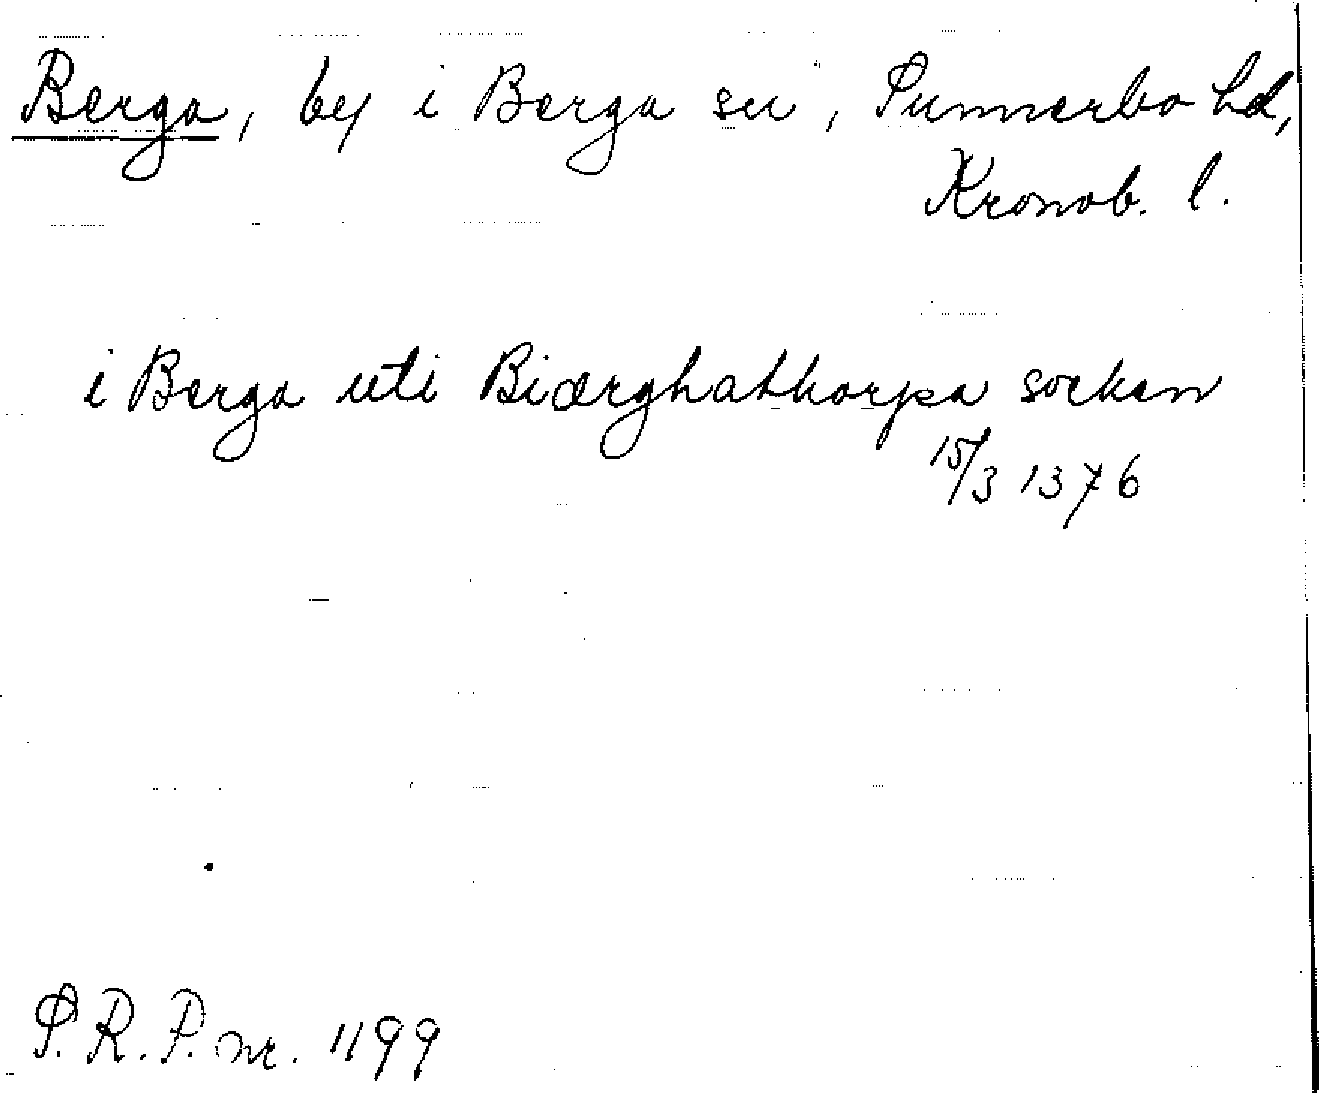 Berga, by i Berga sn, Sunnerbo hd,
Kronob. l.
i Berga uti Biærghathorpa sokn
15/3 1376
S.R.P. nr. 1199